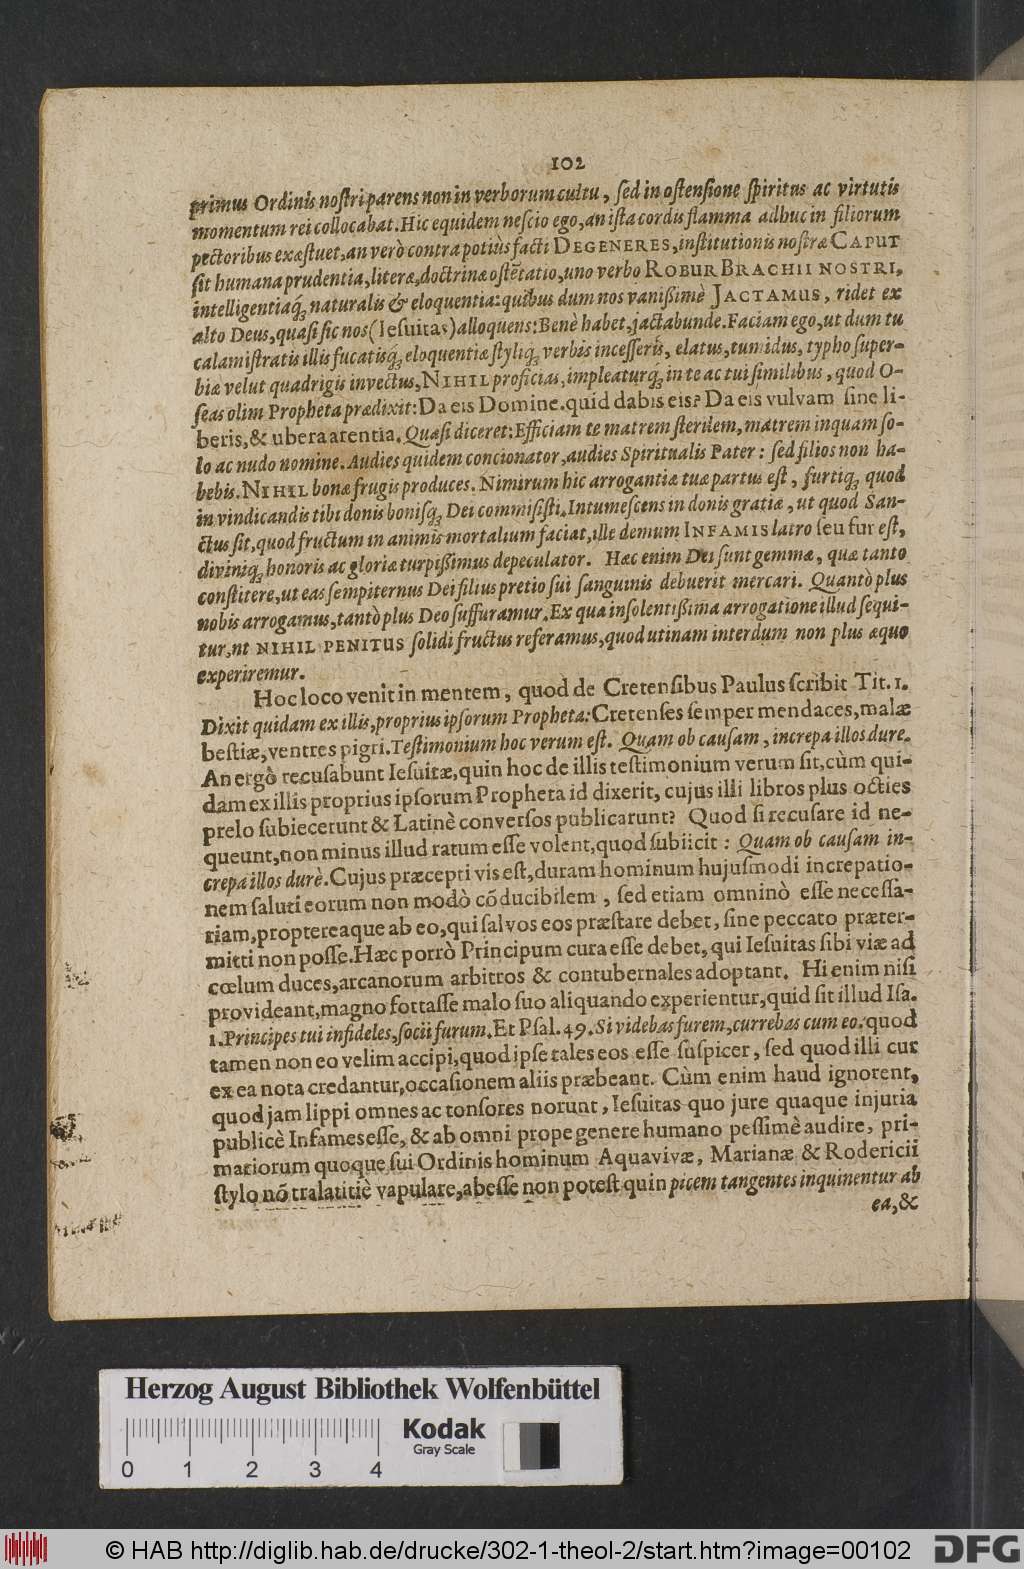 102
primus Ordinis nostri parens non in verborum cultu, sed in ostensione spiritus ac virtutis
momentum rei collocabat. Hic equidem nescio ego, an ista cordis flamma adhuc in filiorum
pectoribus exæstuet, an verò contra potiùs facti DEGENERES, institutionis nostræ CAPUT
sit humana prudentia, literæ, doctrinæ ostẽtatio, uno verbo ROBUR BRACHII NOSTRI,
intelligentiaq́; naturalis & eloquentia: quibus dum nos vanißimè JACTAMUS, ridet ex
alto Deus, quasi sic nos (Iesuitas) alloquens: Benè habet, jactabunde. Faciam ego, ut dum tu
calamistratis illis fucatisq́; eloquentiæ styliq́; verbis incesseris, elatus, tumidus, typho super-
biæ velut quadrigis invectus, NIHIL proficias, impleaturq́; in te ac tui similibus, quod O-
seas olim Propheta prædixit: Da eis Domine. quid dabis eis? Da eis vulvam sine li-
beris, & ubera arentia. Quasi diceret: Efficiam te matrem sterilem, matrem inquam so-
lo ac nudo nomine. Audies quidem concionator, audies Spiritualis Pater: sed filios non ha-
bebis. NIHIL bonæ frugis produces. Nimirum hic arrogantiæ tuæ partus est, furtiq́; quod
in vindicandis tibi donis bonisq́; Dei commisisti. Intumescens in donis gratiæ, ut quod San-
ctus sit, quod fructum in animis mortalium faciat, ille demum INFAMIS latro seu fur est,
diviniq́; honoris ac gloriæ turpißimus depeculator. Hæc enim Dei sunt gemmæ, quæ tanto
constitere, ut eas sempiternus Dei filius pretio sui sanguinis debuerit mercari. Quantò plus
nobis arrogamus, tantò plus Deo suffuramur. Ex qua insolentißima arrogatione illud sequi-
tur, nt NIHIL PENITUS solidi fructus referamus, quod utinam interdum non plus æquo
experiremur.
Hoc loco venit in mentem, quod de Cretensibus Paulus scribit Tit. 1.
Dixit quidam ex illis, proprius ipsorum Propheta: Cretenses semper mendaces, malæ
bestiæ, ventres pigri. Testimonium hoc verum est. Quam ob causam, increpa illos dure.
An ergò recusabunt Iesuitæ, quin hoc de illis testimonium verum sit, cùm qui-
dam ex illis proprius ipsorum Propheta id dixerit, cujus illi libros plus octies
prelo subiecerunt & Latinè conversos publicarunt? Quod si recusare id ne-
queunt, non minus illud ratum esse volent, quod subiicit: Quam ob causam in-
crepa illos durè. Cujus præcepti vis est, duram hominum hujusmodi increpatio-
nem saluti eorum non modò cõducibilem, sed etiam omninò esse necessa-
riam, proptereaque ab eo, qui salvos eos præstare debet, sine peccato præter-
mitti non posse. Hæc porrò Principum cura esse debet, qui Iesuitas sibi viæ ad
cœlum duces, arcanorum arbitros & contubernales adoptant. Hi enim nisi
provideant, magno fortasse malo suo aliquando experientur, quid sit illud Isa.
1. Principes tui infideles, socii furum. Et Psal. 49. Si videbas furem, currebas cum eo. quod
tamen non eo velim accipi, quod ipse tales eos esse suspicer, sed quod illi cur
ex ea nota credantur, occasionem aliis præbeant. Cùm enim haud ignorent,
quod jam lippi omnes ac tonsores norunt, Iesuitas quo jure quaque injuria
publicè Infames esse, & ab omni prope genere humano pessimè audire, pri-
mariorum quoque sui Ordinis hominum Aquavivæ, Marianæ & Roderici
stylo nõ tralatitiè vapulare, abesse non potest quin picem tangentes inquinentur ab
ea, &
Herzog August Bibliothek Wolfenbüttel
Kodak
Gray Scale
0 1 2 3 4
© HAB http://diglib.hab.de/drucke/302-1-theol-2/start.htm?image=00102
DFG